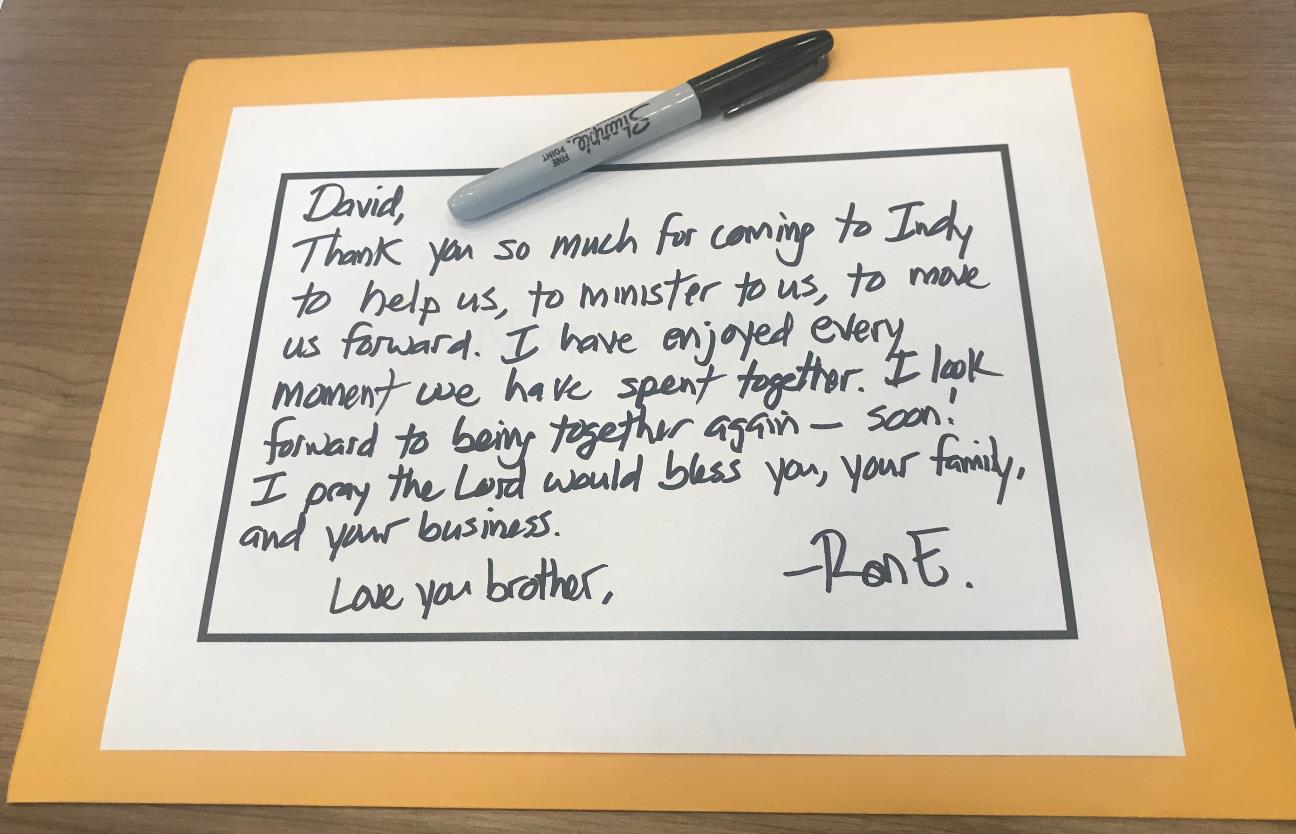 Sharpie
FINE
POINT
David,
Thank you so much for coming to Indy
to help us, to minister to us, to move
us forward. I have enjoyed every
moment we have spent together. I look
forward to being together again – soon!
I pray the Lord would bless you, your family,
and your business.
Love you brother,
-Ron E.